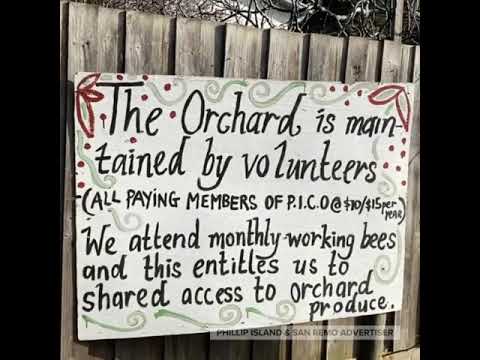 The Orchard is main-
tained by volunteers
(ALL PAYING MEMBERS OF P.I.C.O @ $10/$15 per
YEAR)
We attend monthly working bees
and this entitles us to
shared access to orchard
produce.
PHILLIP ISLAND & SAN REMO ADVERTISER